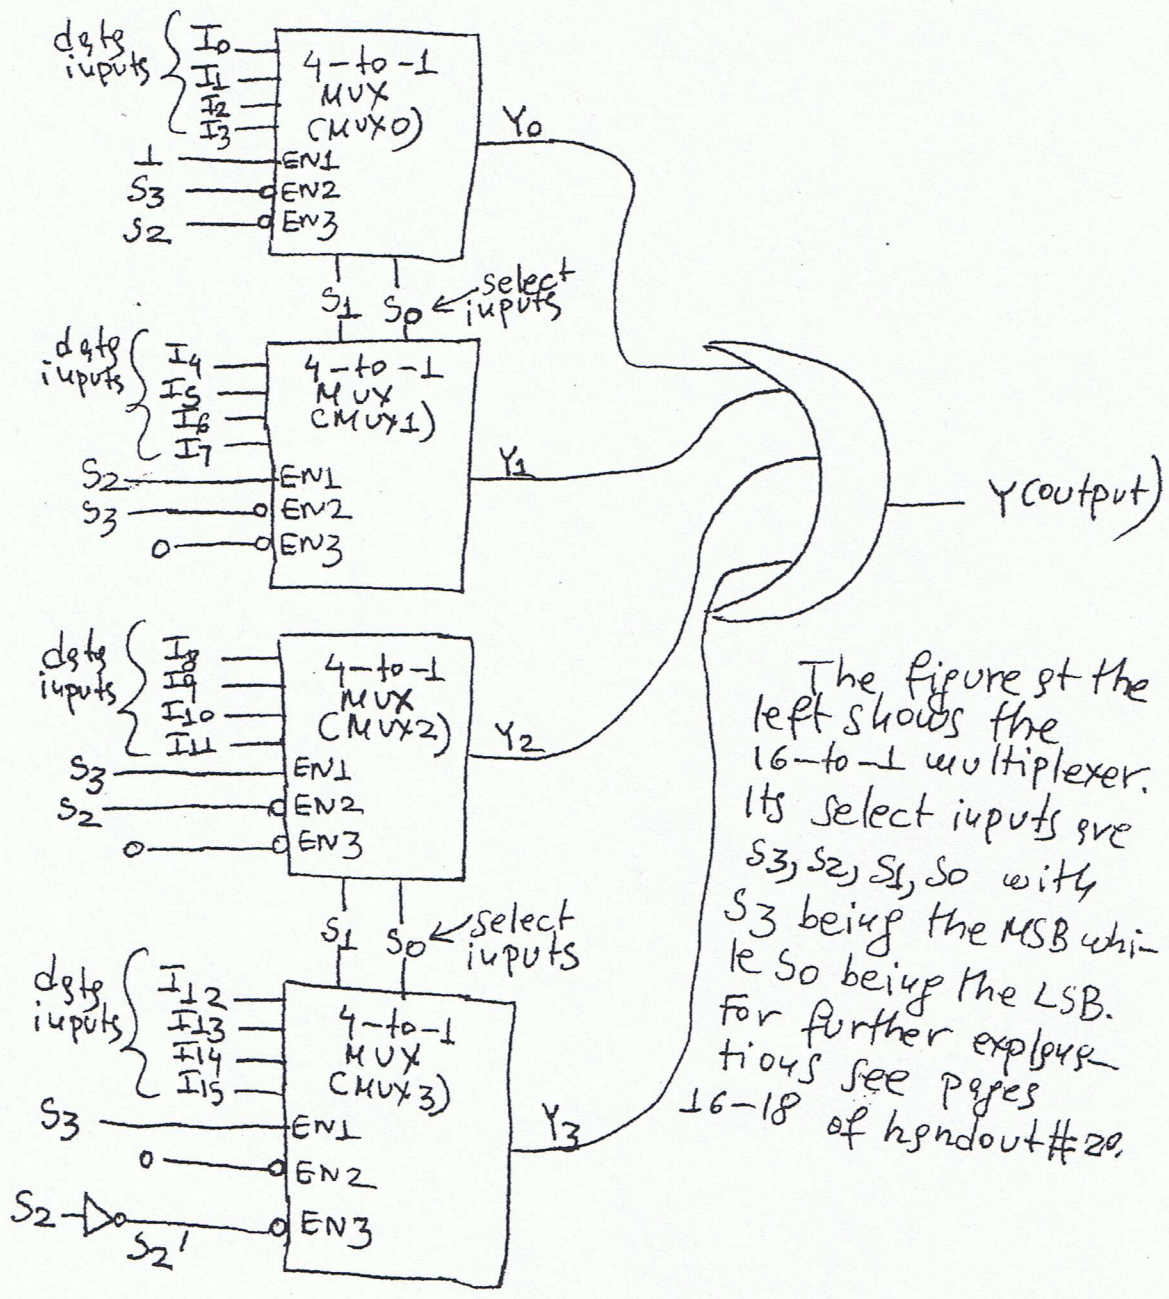 data
inputs
I0
I1
I2
I3
1
S3
S2
4-to-1
MUX
(MUX0)
EN1
EN2
EN3
Y0
S1 S0
select
inputs
data
inputs
I4
I5
I6
I7
S2
S3
0
4-to-1
MUX
(MUX1)
EN1
EN2
EN3
Y1
Y(output)
data
inputs
I8
I9
I10
I11
S3
S2
0
4-to-1
MUX
(MUX2)
EN1
EN2
EN3
Y2
S1 S0
select
inputs
data
inputs
I12
I13
I14
I15
S3
0
S2
S2'
4-to-1
MUX
(MUX3)
EN1
EN2
EN3
Y3
The figure at the
left shows the
16-to-1 multiplexer.
Its select inputs are
S3, S2, S1, S0 with
S3 being the MSB whi-
le S0 being the LSB.
For further explana-
tions see pages
16-18 of handout #20.